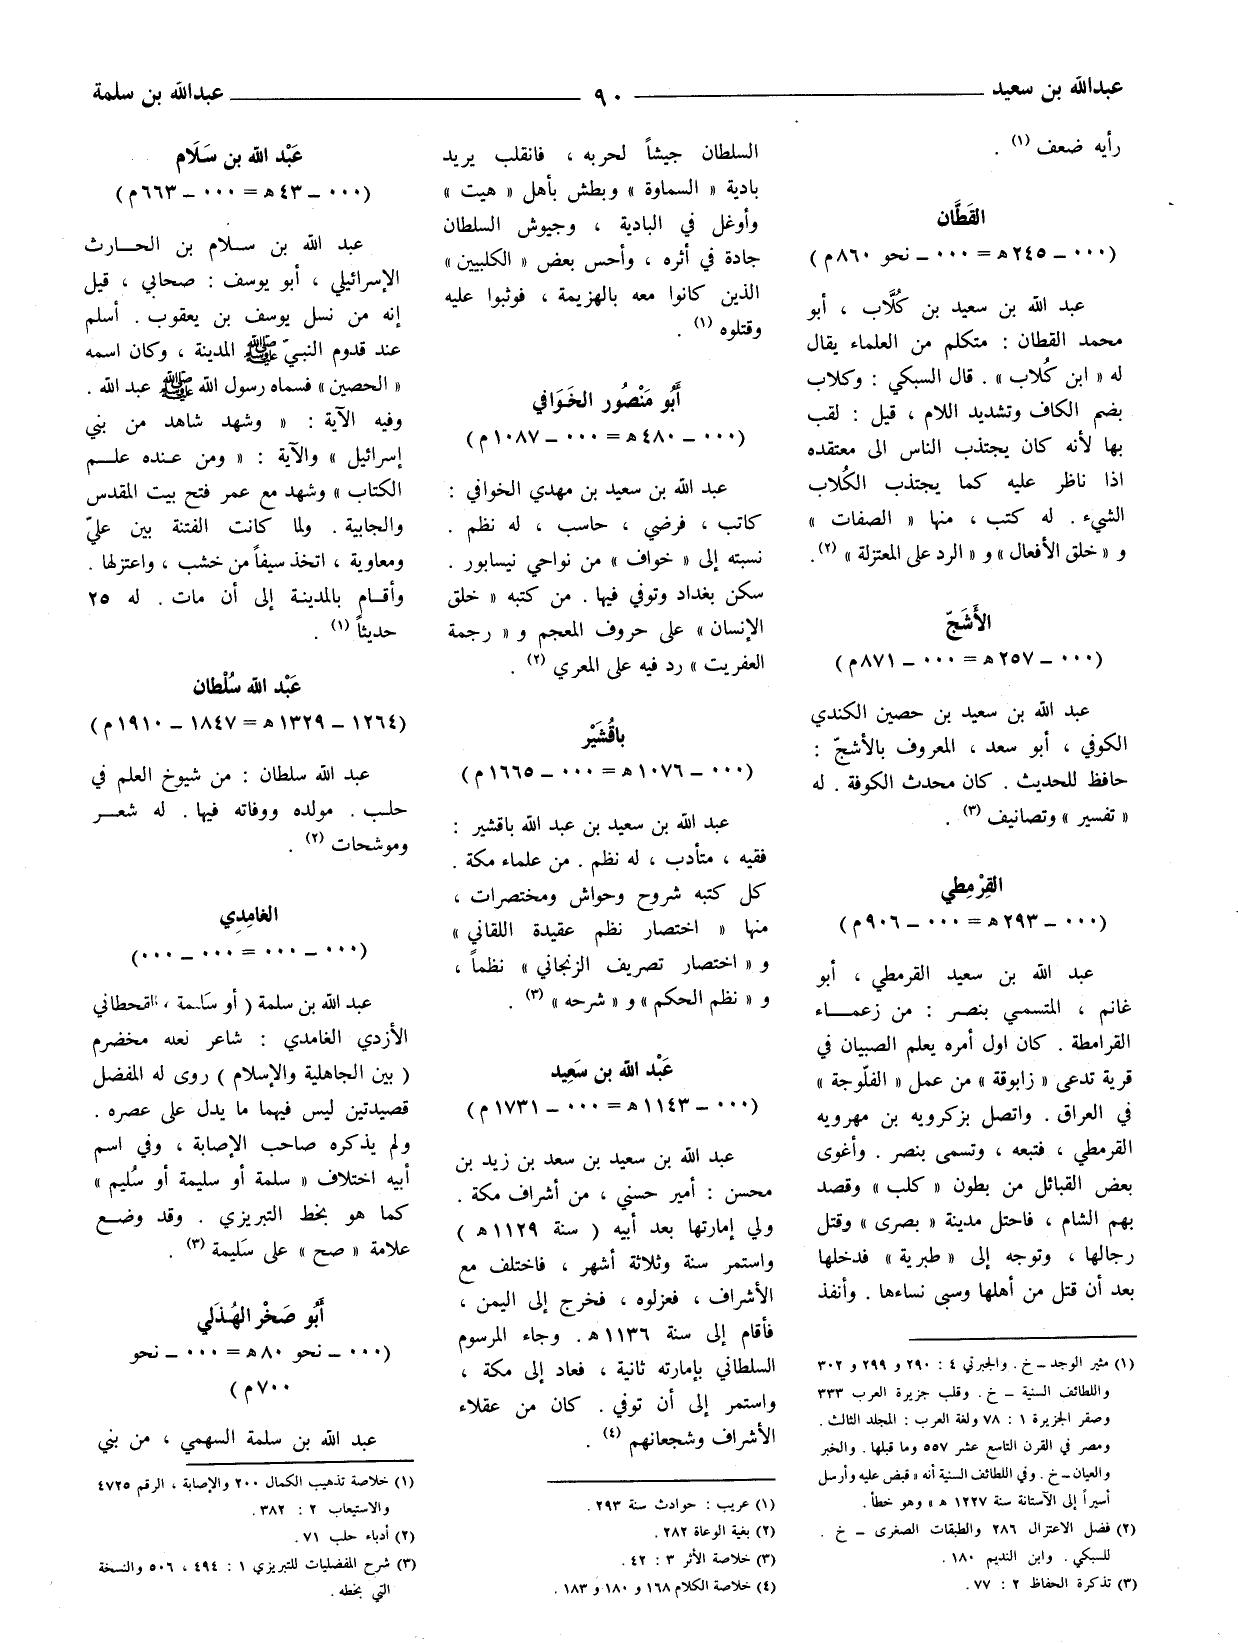 عبدالله بن سعيد ٩٠ عبدالله بن سلمة
رأيه ضعف (١) .
القَطَّان
(٠٠٠ ــ ٢٤٥ ه = ٠٠٠ ــ نحو ٨٦٠ م)
عبد الله بن سعيد بن كُلَّاب ، أبو
محمد القطان : متكلم من العلماء يقال
له « ابن كُلاب » . قال السبكي : وكلاب
بضم الكاف وتشديد اللام ، قيل : لقب
بها لأنه كان يجتذب الناس الى معتقده
اذا ناظر عليه كما يجتذب الكُلاب
الشيء . له كتب ، منها « الصفات »
و « خلق الأفعال » و « الرد على المعتزلة » (٢).
الأَشَجّ
(٠٠٠ ــ ٢٥٧ ه = ٠٠٠ ــ ٨٧١ م)
عبد الله بن سعيد بن حصين الكندي
الكوفي ، أبو سعد ، المعروف بالأشجّ :
حافظ للحديث . كان محدث الكوفة . له
« تفسير » وتصانيف (٣) .
القِرْمِطي
(٠٠٠ ــ ٢٩٣ ه = ٠٠٠ ــ ٩٠٦ م)
عبد الله بن سعيد القرمطي ، أبو
غانم ، المتسمي بنصر : من زعماء
القرامطة . كان اول أمره يعلم الصبيان في
قرية تدعى « زابوقة » من عمل « الفلّوجة »
في العراق . واتصل بزكرويه بن مهرويه
القرمطي ، فتبعه ، وتسمى بنصر . وأغوى
بعض القبائل من بطون « كلب » وقصد
بهم الشام ، فاحتل مدينة « بصرى » وقتل
رجالها ، وتوجه إلى « طبرية » فدخلها
بعد أن قتل من أهلها وسبى نساءها . وأنفذ
(١) مثير الوجد ــ خ . والجبرتي ٤ : ٢٩٠ و ٢٩٩ و ٣٠٢
واللطائف السنية ــ خ . وقلب جزيرة العرب ٣٣٣
وصقر الجزيرة ١ : ٧٨ ولغة العرب : المجلد الثالث .
ومصر في القرن التاسع عشر ٥٥٧ وما قبلها . والخبر
والعيان ــ خ . وفي اللطائف السنية أنه « قبض عليه وأرسل
أسيراً إلى الآستانة سنة ١٢٢٧ ه » وهو خطأ .
(٢) فضل الاعتزال ٢٨٦ والطبقات الصغرى ــ خ .
للسبكي . وابن النديم ١٨٠ .
(٣) تذكرة الحفاظ ٢ : ٧٧ .
السلطان جيشاً لحربه ، فانقلب يريد
بادية « السماوة » وبطش بأهل « هيت »
وأوغل في البادية ، وجيوش السلطان
جادة في أثره ، وأحس بعض « الكلبيين »
الذين كانوا معه بالهزيمة ، فوثبوا عليه
وقتلوه (١) .
أَبُو مَنْصُور الخَوَافي
(٠٠٠ ــ ٤٨٠ ه = ٠٠٠ ــ ١٠٨٧ م)
عبد الله بن سعيد بن مهدي الخوافي :
كاتب ، فرضي ، حاسب ، له نظم .
نسبته إلى « خواف » من نواحي نيسابور .
سكن بغداد وتوفي فيها . من كتبه « خلق
الإنسان » على حروف المعجم و « رجمة
العفريت » رد فيه على المعري (٢) .
باقُشَيْر
(٠٠٠ ــ ١٠٧٦ ه = ٠٠٠ ــ ١٦٦٥ م)
عبد الله بن سعيد بن عبد الله باقشير :
فقيه ، متأدب ، له نظم . من علماء مكة .
كل كتبه شروح وحواش ومختصرات ،
منها « اختصار نظم عقيدة اللقاني »
و « اختصار تصريف الزنجاني » نظماً ،
و « نظم الحكم » و « شرحه » (٣) .
عَبْد الله بن سَعِيد
(٠٠٠ ــ ١١٤٣ ه = ٠٠٠ ــ ١٧٣١ م)
عبد الله بن سعيد بن سعد بن زيد بن
محسن : أمير حسني ، من أشراف مكة .
ولي إمارتها بعد أبيه ( سنة ١١٢٩ ه )
واستمر سنة وثلاثة أشهر ، فاختلف مع
الأشراف ، فعزلوه ، فخرج إلى اليمن ،
فأقام إلى سنة ١١٣٦ ه . وجاء المرسوم
السلطاني بإمارته ثانية ، فعاد إلى مكة ،
واستمر إلى أن توفي . كان من عقلاء
الأشراف وشجعانهم (٤) .
(١) عريب : حوادث سنة ٢٩٣ .
(٢) بغية الوعاة ٢٨٢ .
(٣) خلاصة الأثر ٣ : ٤٢ .
(٤) خلاصة الكلام ١٦٨ و ١٨٠ و ١٨٣ .
عَبْد الله بن سَلَام
(٠٠٠ ــ ٤٣ ه = ٠٠٠ ــ ٦٦٣ م)
عبد الله بن سلام بن الحارث
الإسرائيلي ، أبو يوسف : صحابي ، قيل
إنه من نسل يوسف بن يعقوب . أسلم
عند قدوم النبيّ ﷺ المدينة ، وكان اسمه
« الحصين » فسماه رسول الله ﷺ عبد الله .
وفيه الآية : « وشهد شاهد من بني
إسرائيل » والآية : « ومن عنده علم
الكتاب » وشهد مع عمر فتح بيت المقدس
والجابية . ولما كانت الفتنة بين عليّ
ومعاوية ، اتخذ سيفاً من خشب ، واعتزلها .
وأقام بالمدينة إلى أن مات . له ٢٥
حديثاً (١) .
عَبْد الله سُلْطان
(١٢٦٤ ــ ١٣٢٩ ه = ١٨٤٧ ــ ١٩١٠ م)
عبد الله سلطان : من شيوخ العلم في
حلب . مولده ووفاته فيها . له شعر
وموشحات (٢) .
الغامِدِي
(٠٠٠ ــ ٠٠٠ = ٠٠٠ ــ ٠٠٠)
عبد الله بن سلمة ( أو سَليمة ) القحطاني
الأزدي الغامدي : شاعر نعله مخضرم
( بين الجاهلية والإسلام ) روى له المفضل
قصيدتين ليس فيهما ما يدل على عصره .
ولم يذكره صاحب الإصابة ، وفي اسم
أبيه اختلاف « سلمة أو سليمة أو سُليم »
كما هو بخط التبريزي . وقد وضع
علامة « صح » على سَليمة (٣) .
أَبُو صَخْر الهُذَلي
(٠٠٠ ــ نحو ٨٠ ه = ٠٠٠ ــ نحو
٧٠٠ م)
عبد الله بن سلمة السهمي ، من بني
(١) خلاصة تذهيب الكمال ٢٠٠ والإصابة ، الرقم ٤٧٢٥
والاستيعاب ٢ : ٣٨٢ .
(٢) أدباء حلب ٧١ .
(٣) شرح المفضليات للتبريزي ١ : ٤٩٤ ، ٥٠٦ والنسخة
التي بخطه .